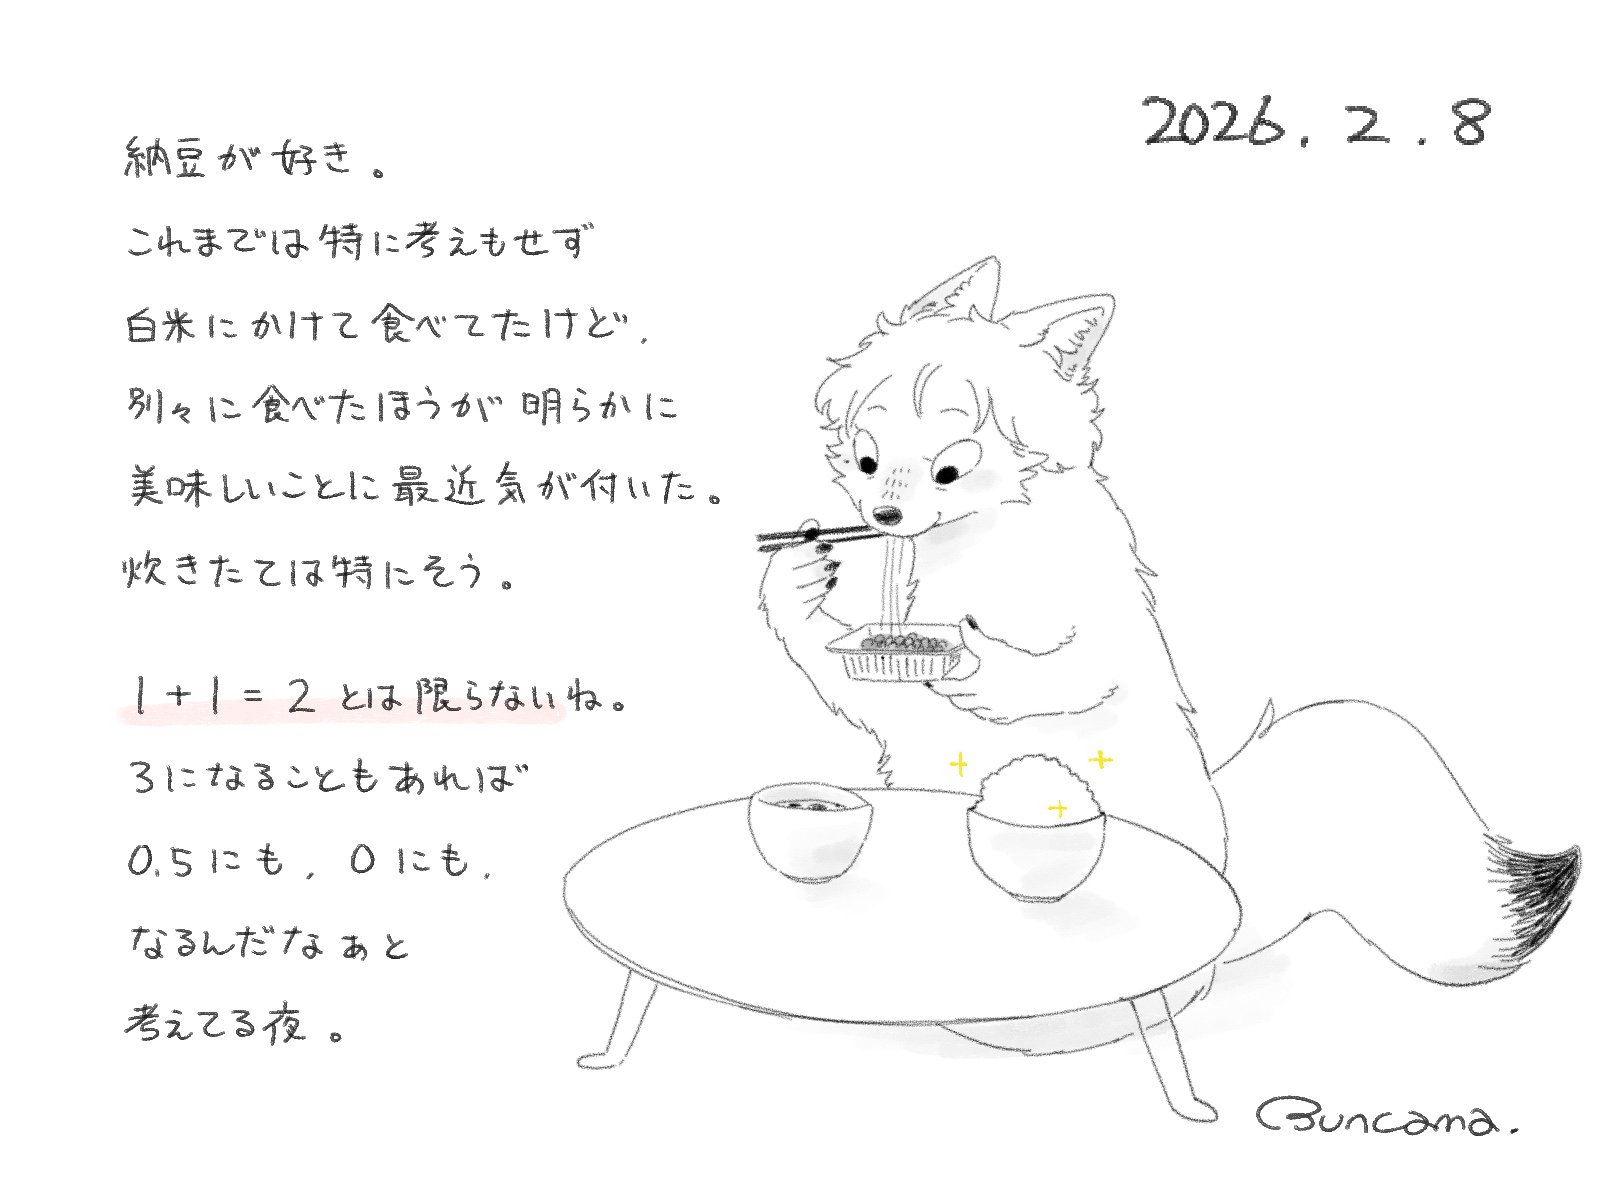 2026.2.8
納豆が好き。
これまでは特に考えもせず
白米にかけて食べてたけど、
別々に食べたほうが明らかに
美味しいことに最近気が付いた。
炊きたては特にそう。
1+1=2とは限らないね。
3になることもあれば
0.5にも、0にも、
なるんだなぁと
考えてる夜。
Buncama.